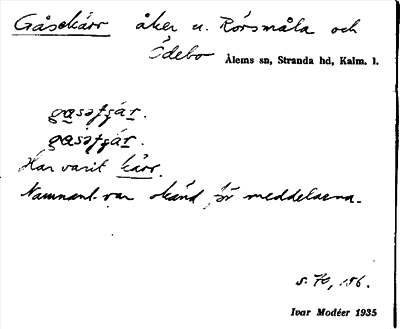 Gåsekärr åker u. Rörsmåla och
Ödebo Ålems sn, Stranda hd, Kalm. l.
Har varit kärr.
Namnant. var okänd för meddelarna.
s. 70, 156.
Ivar Modéer 1935